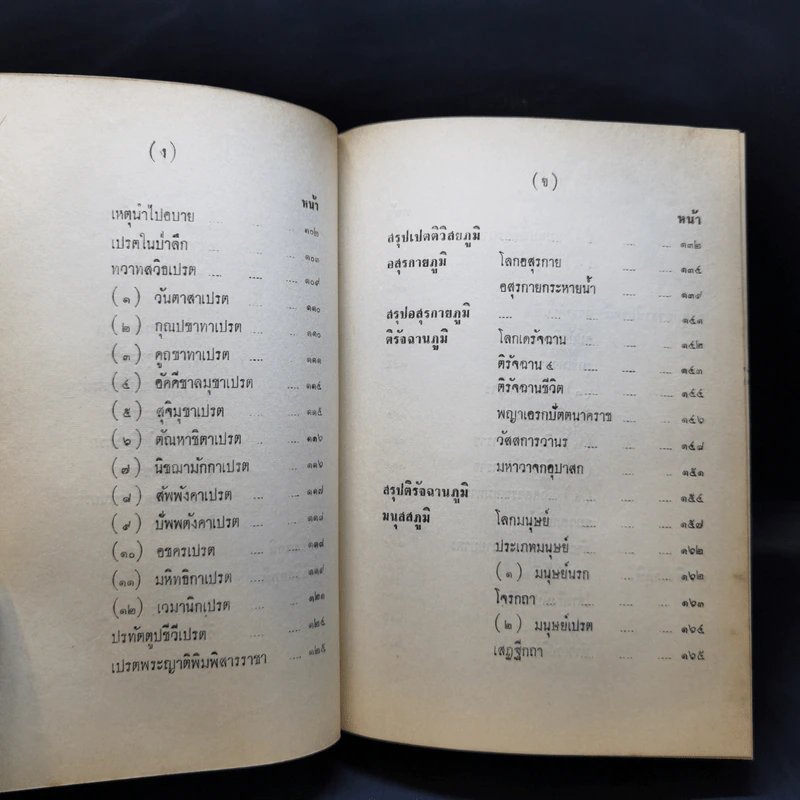 (ง)
หน้า
เหตุนำไปอบาย .... .... ๑๐๒
เปรตในป่าลึก .... .... ๑๐๓
ทวาทสวิธเปรต .... .... ๑๐๙
(๑) วันตาสาเปรต .... ๑๑๐
(๒) กุณปขาทาเปรต .... ๑๑๐
(๓) คูถขาทาเปรต .... ๑๑๑
(๔) อัคคีชาลมุขาเปรต .... ๑๑๔
(๕) สุจิมุขาเปรต .... ๑๑๕
(๖) ตัณหาชิตาเปรต .... ๑๑๖
(๗) นิชฌามักกาเปรต .... ๑๑๖
(๘) สัพพังคาเปรต .... ๑๑๗
(๙) ปัพพตังคาเปรต .... ๑๑๘
(๑๐) อชครเปรต .... ๑๑๘
(๑๑) มหิทธิกาเปรต .... ๑๑๙
(๑๒) เวมานิกเปรต .... ๑๒๑
ปรทัตตูปชีวีเปรต .... .... ๑๒๔
เปรตพระญาติพิมพิสารราชา .... ๑๒๕
(จ)
หน้า
สรุปเปตติวิสยภูมิ .... .... .... ๑๓๒
อสุรกายภูมิ โลกอสุรกาย .... .... ๑๓๕
อสุรกายกระหายน้ำ .... ๑๓๙
สรุปอสุรกายภูมิ .... .... .... ๑๔๑
ติรัจฉานภูมิ โลกเดรัจฉาน .... .... ๑๔๒
ติรัจฉาน ๔ .... .... ๑๔๓
ติรัจฉานชีวิต .... .... ๑๔๔
พญาเอรกปัตตนาคราช .... ๑๔๖
วัสสการวานร .... .... ๑๔๘
มหาวาจกอุบาสก .... ๑๕๑
สรุปติรัจฉานภูมิ .... .... .... ๑๕๔
มนุสสภูมิ โลกมนุษย์ .... .... ๑๕๗
ประเภทมนุษย์ .... .... ๑๖๒
(๑) มนุษย์นรก .... .... ๑๖๒
โจรกถา .... .... ๑๖๓
(๒) มนุษย์เปรต .... .... ๑๖๔
เสฏฐีกถา .... .... ๑๖๕